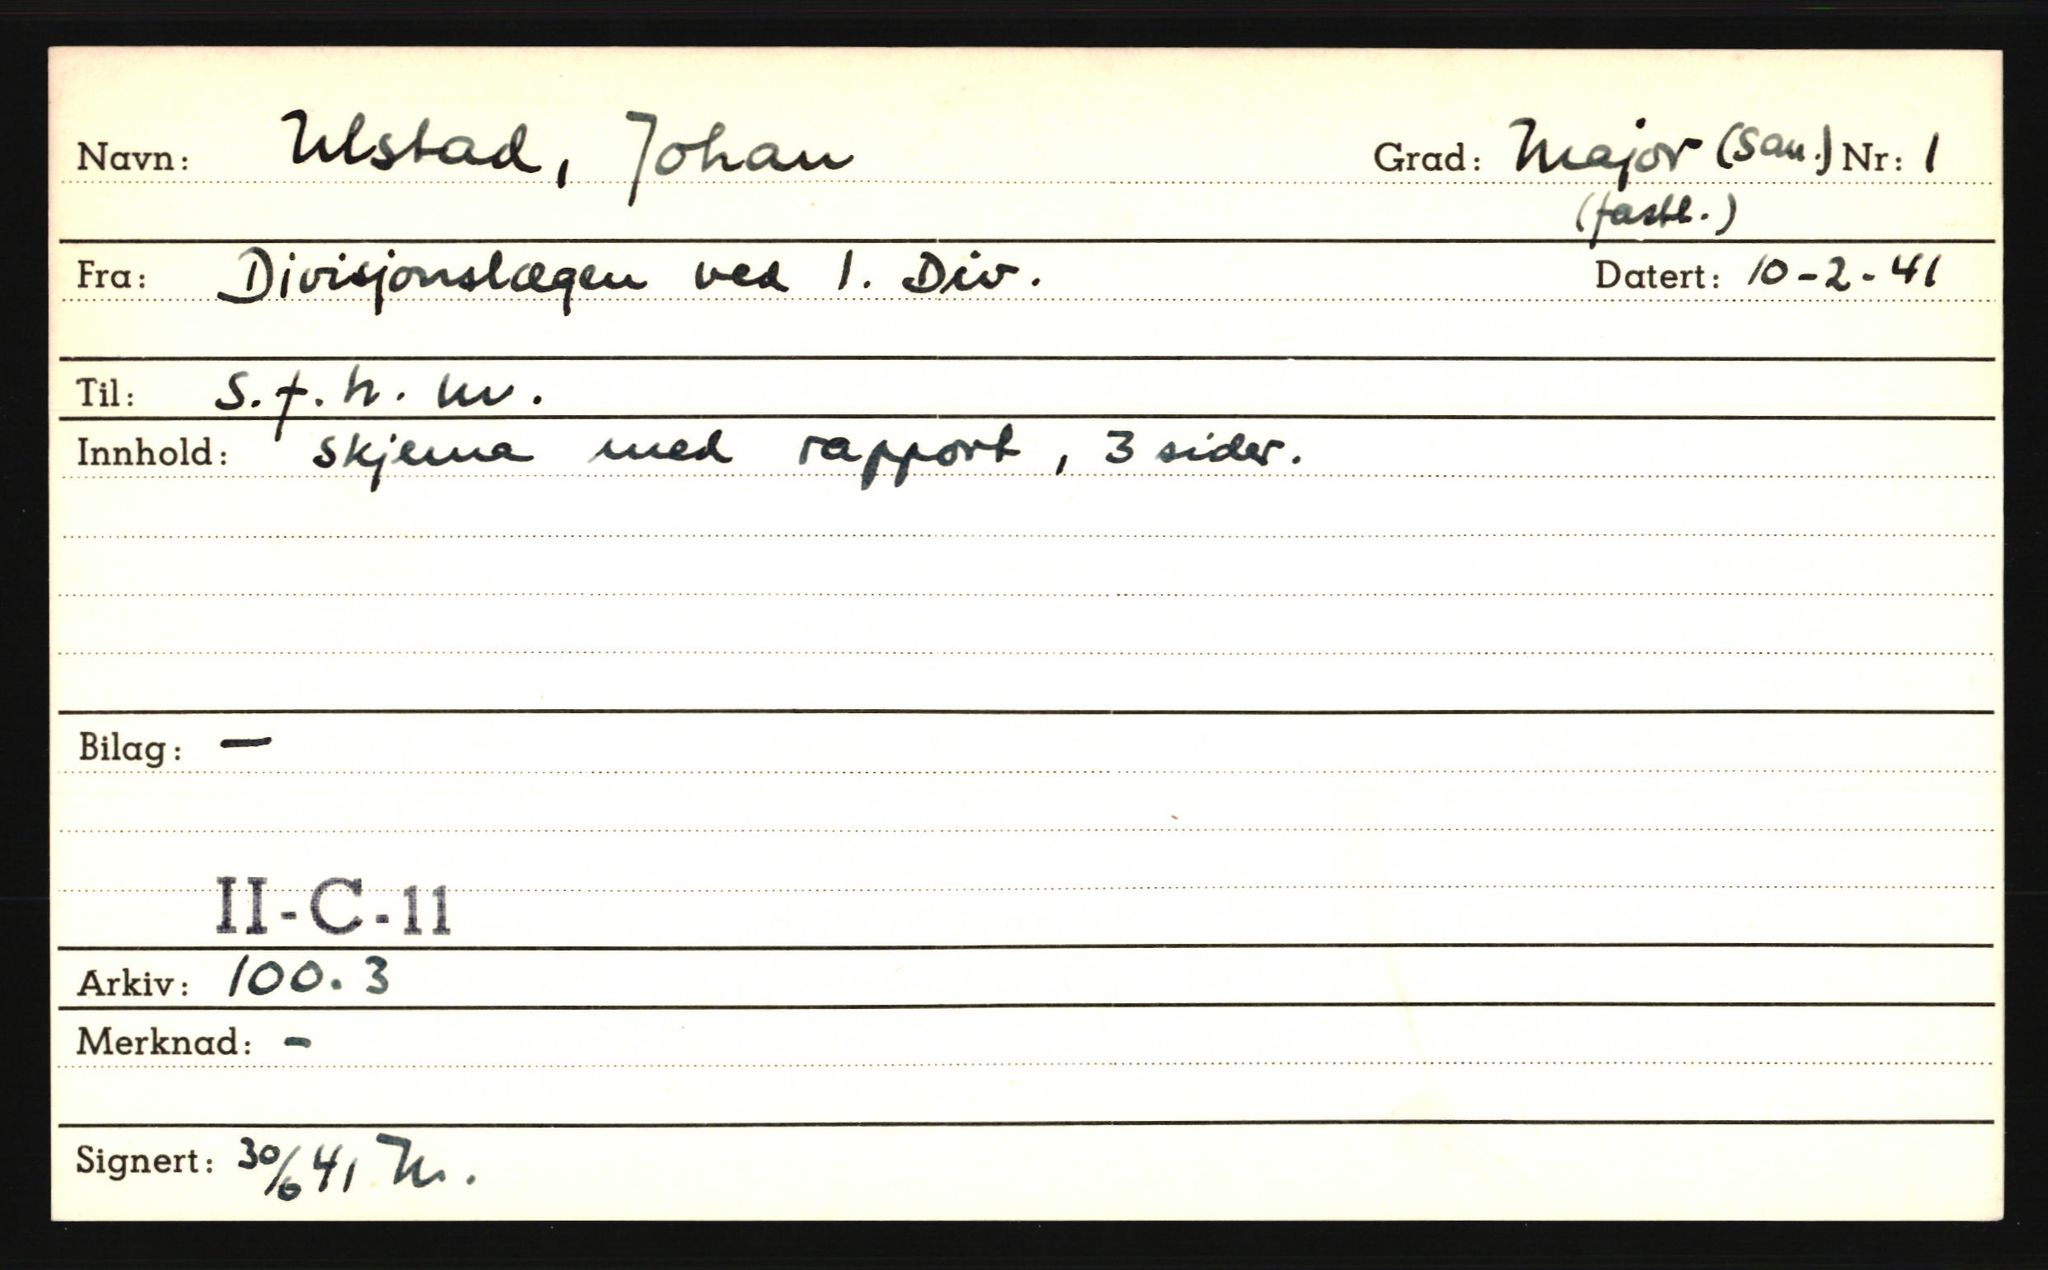 Navn: Ulstad, Johan Grad: Major (San.) Nr: 1
(fastl.)
Fra: Divisjonslægen ved 1. Div. Datert: 10-2-41
Til: S.f.h.
Innhold: skjema med rapport, 3 sider.
Bilag: —
II-C-11
Arkiv: 100.3
Merknad: -
Signert: 30/6 41